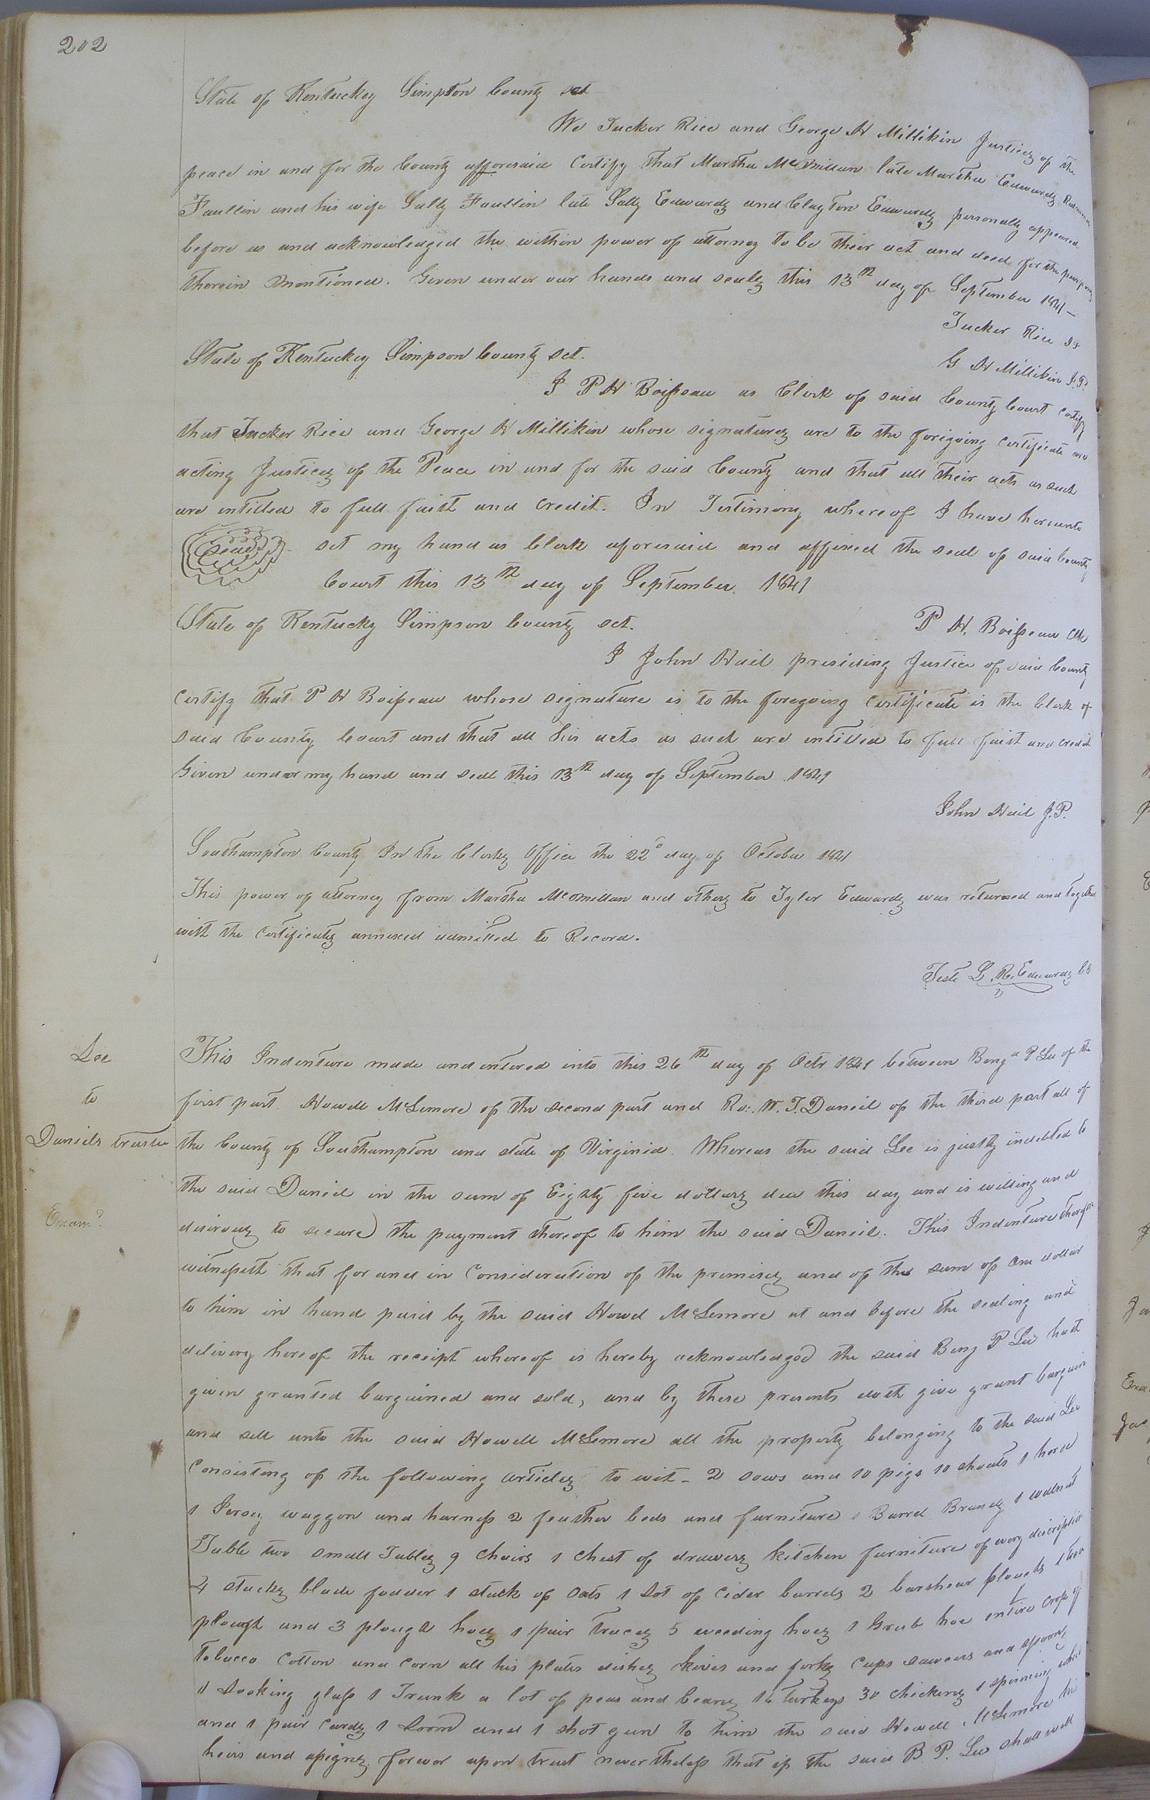 202
State of Kentucky Simpson County sct
We Tucker Rice and George W Millikin Justices of the
peace in and for the County afforesaid Certify that Martha McMillan late Martha Edwards
Faullin and his wife Sally Faullin late Sally Edwards and Clayton Edwards personally appeared
before us and acknowledged the within power of attorney to be their act and deed for the purposes
therein mentioned. Given under our hands and seals this 13th day of September 1841 —
Tucker Rice
G W Millikin J.P.
State of Kentucky Simpson County sct.
I P H Boisseau as Clerk of said County Court certify
that Tucker Rice and George W Millikin whose signatures are to the forigoing certificate are
acting Justices of the Peace in and for the said County and that all their acts as such
are intitled to full faith and credit. In Testimony whereof I have hereunto
Seal set my hand as Clerk aforesaid and affixed the seal of said County
Court this 13th day of September 1841
P H. Boisseau Clk
State of Kentucky Simpson County sct.
I John Hail presiding Justice of said County
certify that P H Boisseau whose signature is to the foregoing certificate is the Clerk of
said County Court and that all his acts as such are intitled to full faith and credit
Given under my hand and seal this 13th day of September 1841
John Hail J.P.
Southampton County In the Clerks Office the 22d day of October 1841
This power of attorney from Martha McMillan and others to Tyler Edwards was returned and together
with the certificates annexed admitted to Record.
Teste L. R. Edwards
Lee
to
Daniels trustee
Exam.d
This Indenture made and entered into this 26th day of Octr 1841 between Benja P Lee of the
first part Howell McLemore of the second part and Ro: W. T. Daniel of the third part all of
the County of Southampton and state of Virginia. Whereas the said Lee is justly indebted to
the said Daniel in the sum of Eighty five dollars due this day and is willing and
desirous to secure the payment thereof to him the said Daniel. This Indenture therefore
witnesseth that for and in Consideration of the premises and of the sum of one dollar
to him in hand paid by the said Howel McLemore at and before the sealing and
delivery hereof the receipt whereof is hereby acknowledged the said Benj P Lee hath
given granted bargained and sold, and by these presents doth give grant bargain
and sell unto the said Howell McLemore all the property belonging to the said Lee
consisting of the following articles to wit - 2 sows and 10 pigs 10 shoats 1 horse
1 Jersey waggon and harness 2 feather beds and furniture 1 Barrel Brandy 1 walnut
Table two small Tables 9 chairs 1 chest of drawers kitchen furniture of every discription
4 stacks blade fodder 1 stack of oats 1 Lot of cider barrels 2 barshear ploughs 1 two
plough and 3 plough hoes 1 pair traces 5 weeding hoes 1 Grub hoe entire crop of
Tobacco Cotton and Corn all his plates dishes knives and forks cups saucers and spoons
1 Looking glass 1 Trunk a lot of peas and beans 16 Turkeys 30 chickens 1 spinning wheel
and 1 pair cards 1 Loom and 1 shot gun to him the said Howell McLemore his
heirs and assigns forever upon trust nevertheless that if the said B P. Lee shall well